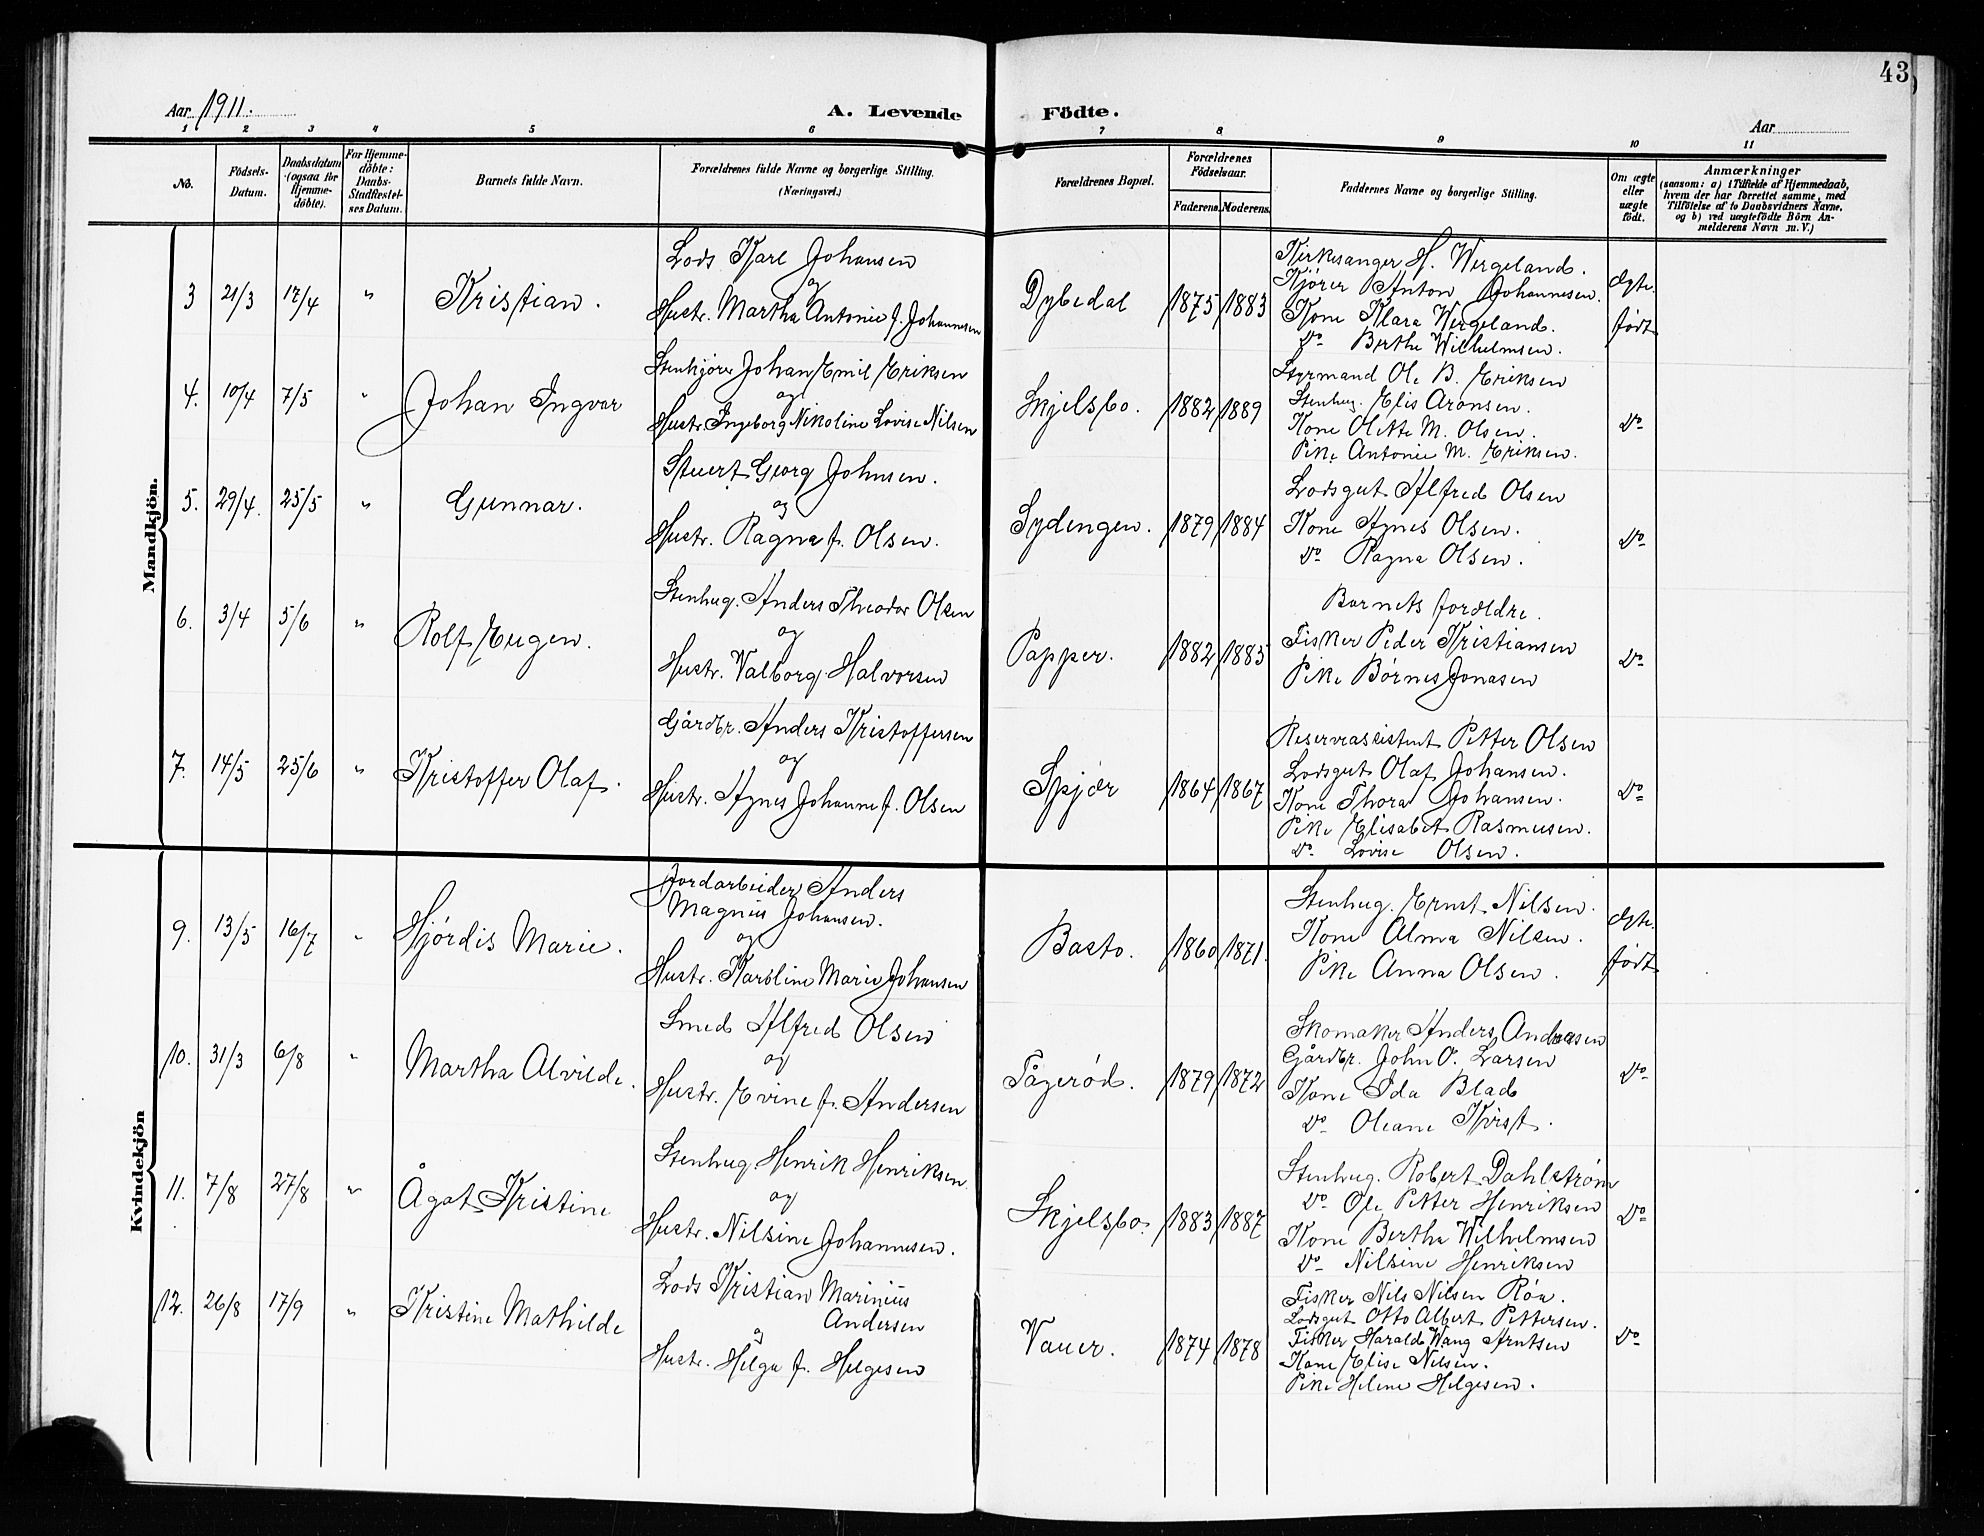 43
Aar 1911.
A. Levende Födte.
Aar
1 2 3 4 5 6 7 8 9 10 11
No.
Födsels-Datum.
Daabsdatum (ogsaa for Hjemme-döbte).
For Hjemme-döbte: Daabs-Stadfæstel-ses Datum.
Barnets fulde Navn.
Forældrenes fulde Navne og borgerlige Stilling.
(Næringsvei.)
Forældrenes Bopæl.
Forældrenes Födselsaar.
Faderens. Moderens.
Faddernes Navne og borgerlige Stilling.
Om ægte eller uægte födt.
Anmærkninger
(saasom: a) i Tilfælde af Hjemmedaab,
hvem der har forrettet samme, med
Tilföielse af to Daabsvidners Navne,
og b) ved uægtefödte Börn An-
melderens Navn m. V.)
Mandkjön.
3 21/3 17/4 " Kristian.
Lods Karl Johansen
og
Hustr. Martha Antonie f. Johannesen
Dybedal 1875 1883
Kirkesanger H. Wergeland.
Kjører Anton Johannesen.
Kone Klara Wergeland.
Do Berthe Wilhelmsen.
Ægte født
4. 10/4 7/5 " Johan Ingvar
Stenkjører Johan Emil Eriksen
og
Hustr. Ingeborg Nikoline Lovise Nilsen
Skjelsbo. 1882 1889
Styrmand Ole B. Eriksen
Stenhug. Elis Aronsen.
Kone Olette M. Olsen.
Pike Antonie M. Eriksen.
Do
5. 29/4. 25/5 " Gunnar.
Stuert Georg Johnsen.
og
Hustr. Ragna f. Olsen.
Sydengen. 1879 1884
Lodsgut Alfred Olsen
Kone Agnes Olsen.
Do Ragna Olsen.
Do
6. 3/4 5/6 " Rolf Eugen.
Stenhug. Anders Theodor Olsen
og
Hustr. Valborg Halvorsen
Papper. 1882 1885
Barnets forældre.
Fisker Peder Kristiansen
Pike Børnes Jonasen
Do
7. 14/5 25/6 " Kristoffer Olaf.
Gårdbr. Anders Kristoffersen
og
Hustr. Agnes Johanne f. Olsen
Spjær 1864 1867
Reserveassistent Petter Olsen
Lodsgut Olaf Johansen.
Kone Thora Johansen.
Pike Elisabet Rasmusen.
Do Lovise Olsen.
Do
Kvindekjön
9. 13/5 16/7 " Hjørdis Marie.
Jordarbeider Anders
Magnus Johansen.
og
Hustr. Karoline Marie Johansen
Basto. 1860 1871.
Stenhug. Ernst Nilsen.
Kone Alma Nilsen.
Pike Anna Olsen.
Ægte født
10. 31/3 6/8 " Martha Alvilde.
Smed Alfred Olsen
og
Hustr. Evine f. Andersen
Fagerød. 1879 1872
Skomaker Anders Andreasen
Gårdbr. John O. Larsen
Kone Ida Blad
Do Oleane Kvist.
Do
11. 7/8 27/8 " Ågot Kristine
Stenhug. Henrik Henriksen
og
Hustr. Nilsine Johannesen.
Skjelsbo. 1883 1887
Stenhug. Robert Dahlstrøm
Do Ole Petter Henriksen
Kone Bertha Wilhelmsen
Do Nilsine Henriksen
Do
12. 26/8 17/9 " Kristine Mathilde
Lods Kristian Marinius
Andersen
og
Hustr. Helga f. Helgesen
Vauer. 1874 1878
Fisker Nils Nilsen Røa.
Lodsgut Otto Albert Pettersen.
Fisker Harald Wang Arntsen
Kone Elise Nilsen.
Pike Helene Helgesen.
Do